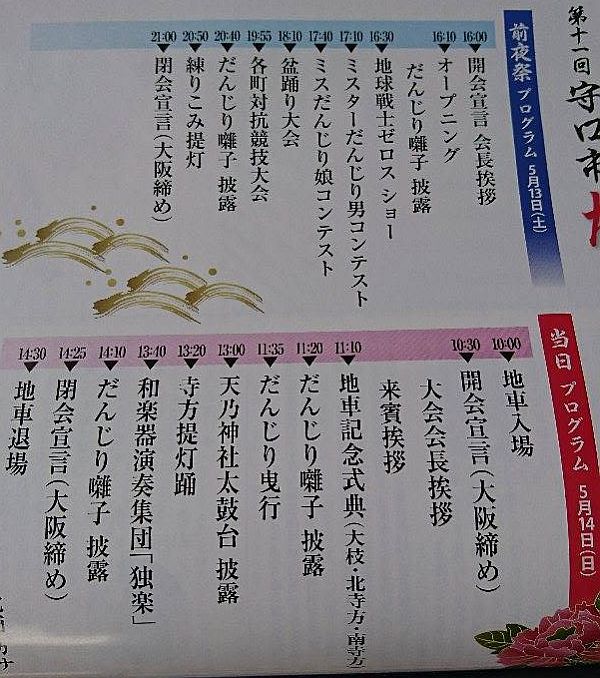 第十一回 守口市
前夜祭 プログラム 5月13日(土)
16:00 開会宣言 会長挨拶
16:10 オープニング
だんじり囃子 披露
16:30 地球戦士ゼロス ショー
17:10 ミスターだんじり男コンテスト
17:40 ミスだんじり娘コンテスト
18:10 盆踊り大会
19:55 各町対抗競技大会
20:40 だんじり囃子 披露
20:50 練りこみ提灯
21:00 閉会宣言(大阪締め)
当日 プログラム 5月14日(日)
10:00 地車入場
10:30 開会宣言(大阪締め)
大会会長挨拶
来賓挨拶
11:10 地車記念式典(大枝・北寺方・南寺方)
11:20 だんじり囃子 披露
11:35 だんじり曳行
13:00 天乃神社太鼓台 披露
13:20 寺方提灯踊
13:40 和楽器演奏集団「独楽」
14:10 だんじり囃子 披露
14:25 閉会宣言(大阪締め)
14:30 地車退場